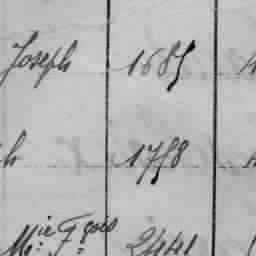 Joseph 1685
h 1758
Mie Fçois 2441